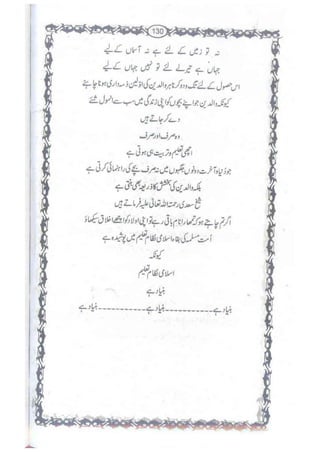 130
نہ تو زمیں کے لئے ہے نہ آسماں کے لیے
جہاں ہے تیرے لئے تو نہیں جہاں کے لیے
اس حصول کے لئے تگ و دو کرنا ہر والدین کی اولین ذمہ داری ہونا چاہئے
کیونکہ والدین جو اپنے بچوں کو اپنی زندگی میں سب سے انمول شئے
دے کر جاتے ہیں
وہ صرف اور صرف
اچھی تعلیم و تربیت ہی ہوتی ہے
جو دنیا و آخرت دونوں جگہوں میں نہ صرف بچے کی راہنمائی کرتی ہے
بلکہ والدین کی بخشش کا ذریعہ بھی بنتی ہے
شیخ سعدی رحمۃ اللہ تعالیٰ علیہ فرماتے ہیں
اگر تم چاہتے ہو کہ تمہارا نام باقی رہے تو اپنی اولاد کو اچھے اخلاق سکھاؤ
اُمت مسلمہ کی بقاء اسلامی نظام تعلیم میں پوشیدہ ہے
کیونکہ
اسلامی نظام تعلیم
بنیاد ہے
بنیاد ہے-----------بنیاد ہے-----------بنیاد ہے